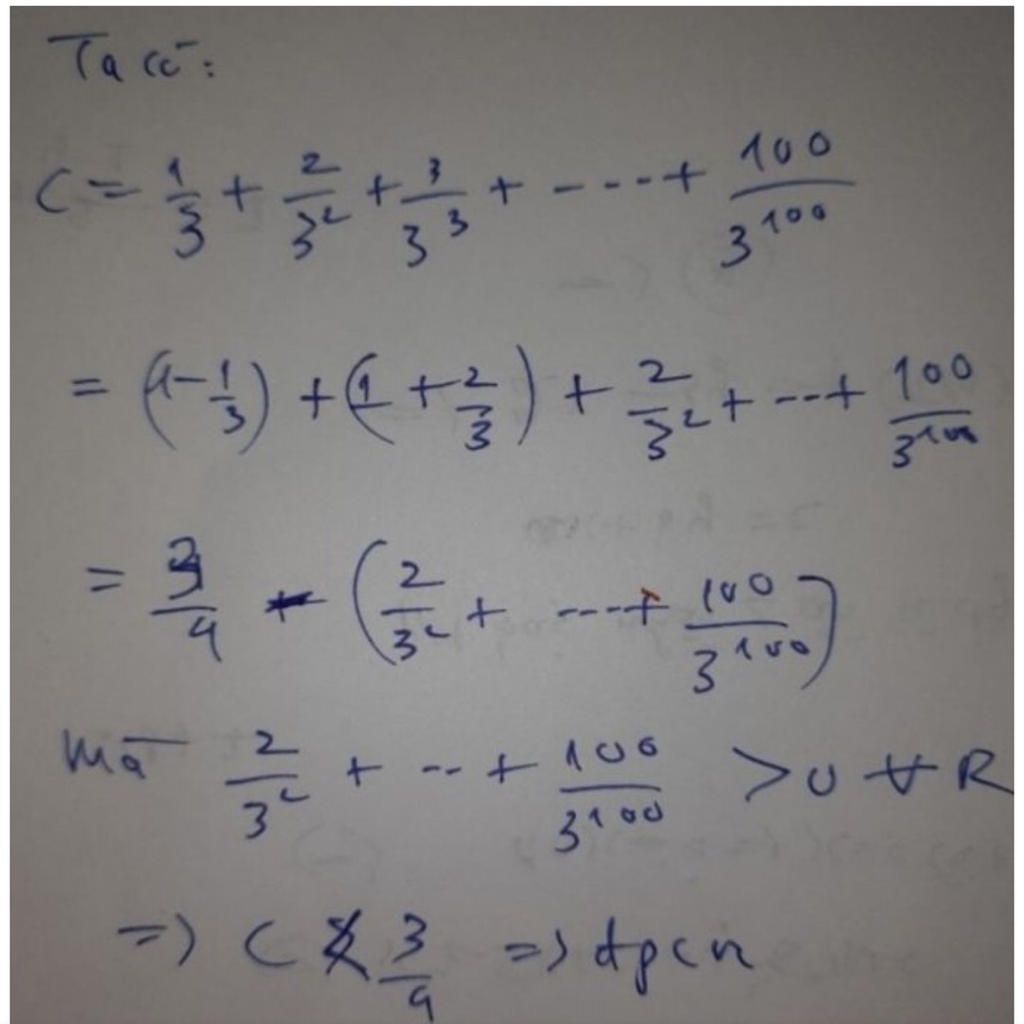 Ta có:
C = 1/3 + 2/3² + 3/3³ + ----+ 100/3¹⁰⁰
= (1 - 1/3) + (1 + 2/3) + 2/3² + ---+ 100/3¹⁰⁰
= 3/4 - (2/3² + ----+ 100/3¹⁰⁰)
Mà 2/3² + --- + 100/3¹⁰⁰ > 0 ∀ R
=> C < 3/4 => đpcm